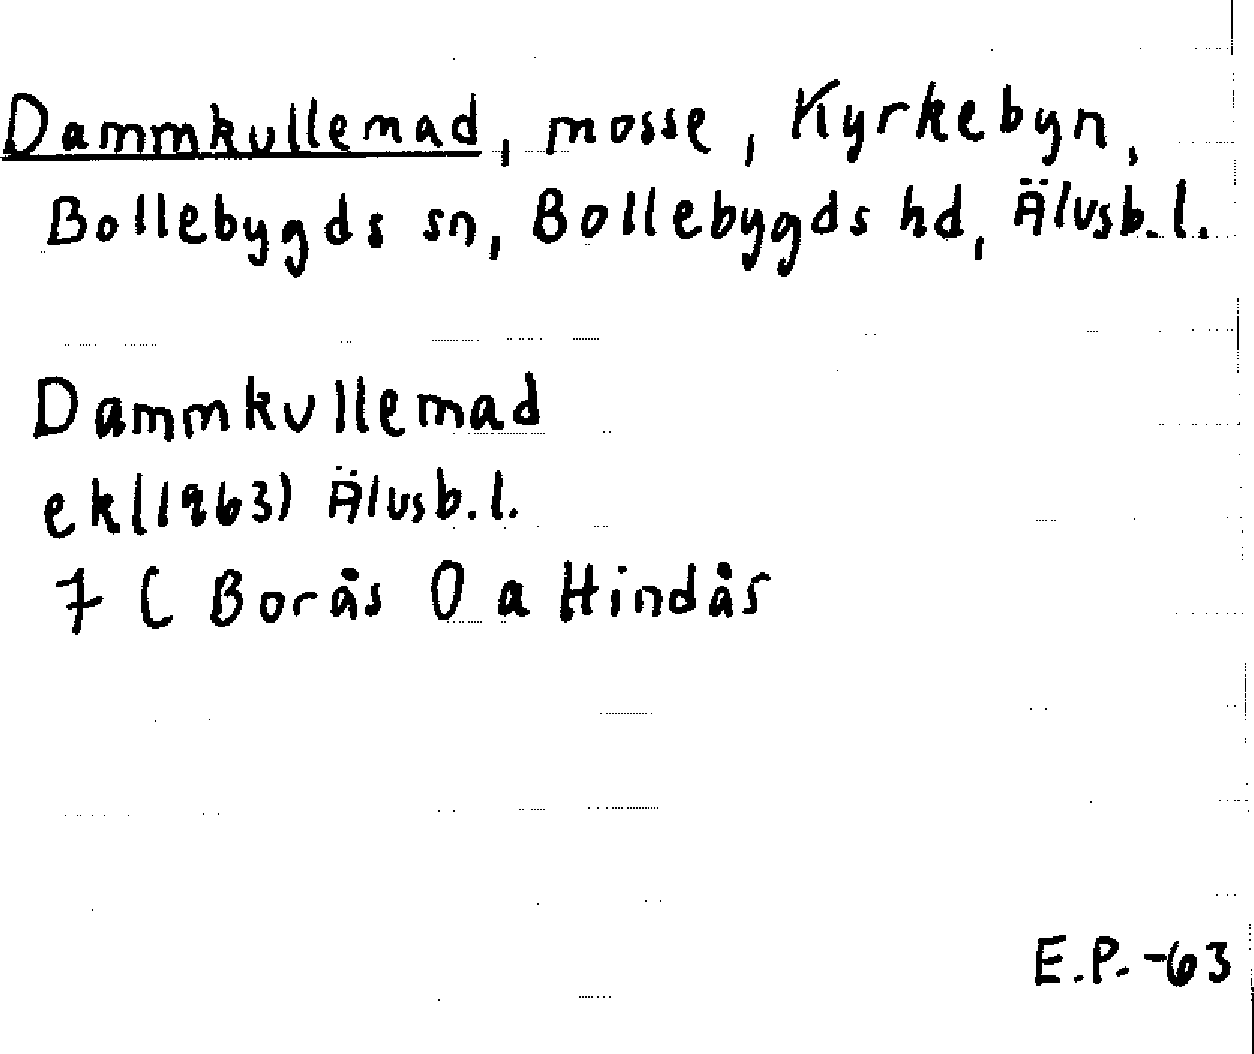 Dammkullemad, mosse, Kyrkebyn,
Bollebygds sn, Bollebygds hd, Älvsb.l.
Dammkullemad
ek(1963) Älvsb.l.
7 C Borås O a Hindås
E.P. -63